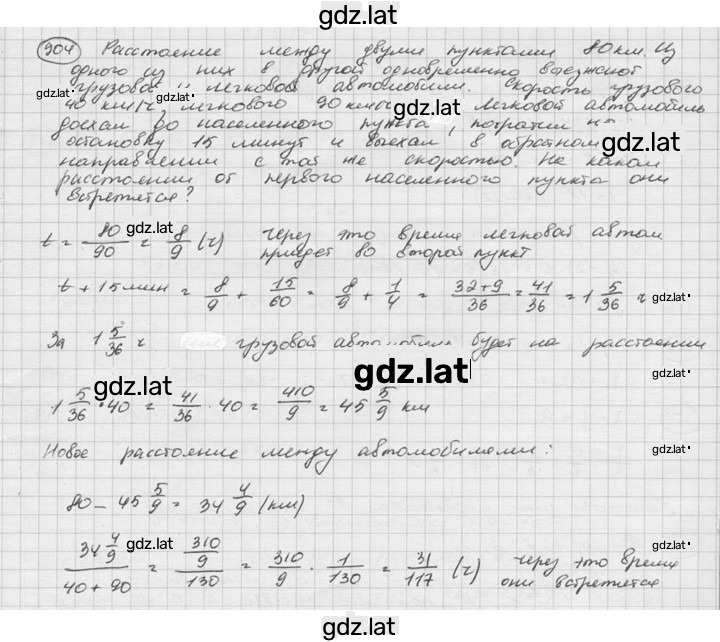 gdz.lat
904 Расстояние между двумя пунктами 80 км. Из
одного из них в другой одновременно выезжают
грузовой и легковой автомобили. Скорость грузового
gdz.lat gdz.lat
40 км/ч, легкового 90 км/ч. gdz.lat легковой автомобиль
доехал до населенного пункта, потратил на
остановку 15 минут и выехал в обратном gdz.lat
направлении с той же скоростью. На каком
расстоянии от первого населенного пункта они
встретятся?
gdz.lat
t = 80/90 = 8/9 (ч) через это время легковой автом
придет во второй пункт
t + 15 мин = 8/9 + 15/60 = 8/9 + 1/4 = (32+9)/36 = 41/36 = 1 5/36 ч gdz.lat
За 1 5/36 ч грузовой автомобиль будет на расстоянии
gdz.lat gdz.lat gdz.lat
1 5/36 · 40 = 41/36 · 40 = 410/9 = 45 5/9 км
Новое расстояние между автомобилями: gdz.lat
80 - 45 5/9 = 34 4/9 (км) gdz.lat
(34 4/9)/(40 + 90) = (310/9)/130 = 310/9 · 1/130 = 31/117 (ч) через это время
они встретятся
gdz.lat gdz.lat
gdz.lat